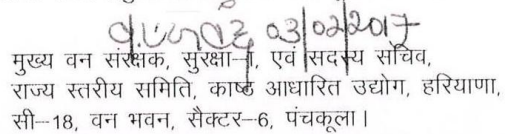 03/02/2017
मुख्य वन संरक्षक, सुरक्षा-I, एवं सदस्य सचिव,
राज्य स्तरीय समिति, काष्ठ आधारित उद्योग, हरियाणा,
सी-18, वन भवन, सैक्टर-6, पंचकूला।